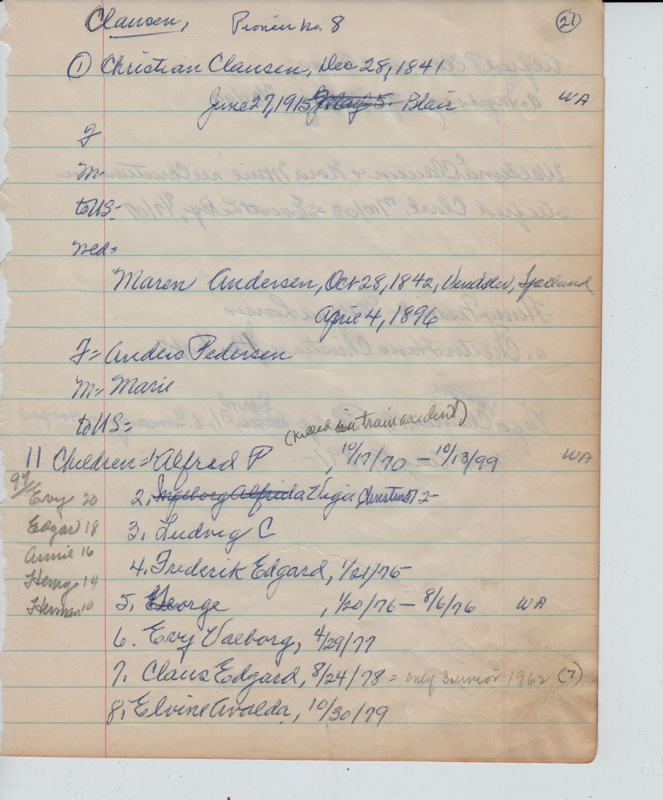 Clausen, Pioneer no. 8 (21)
① Christian Clausen, Dec 28, 1841
June 27, 1915 Blair WA
F
M-
to US-
Med=
Maren Andersen, Oct 28, 1842,
April 4, 1896
F = Anders Pedersen
M= Marie
to US=
(killed in train accident)
11 Children = 1. Alfred P , 10/17/70 – 10/13/99 WA
97/
Evy 20
Edgar 18
Annie 16
Henry 14
Herman 10
2. Ingeborg Alfrida Viga Christine 72-
3. Ludvig C
4. Frederik Edgard, 1/21/75
5. George , 1/20/76 – 8/6/76 WA
6. Evy Valborg, 4/29/77
7. Claus Edgard, 8/24/78 = only survivor 1962 (?)
8. Elvine Avalda, 10/30/79